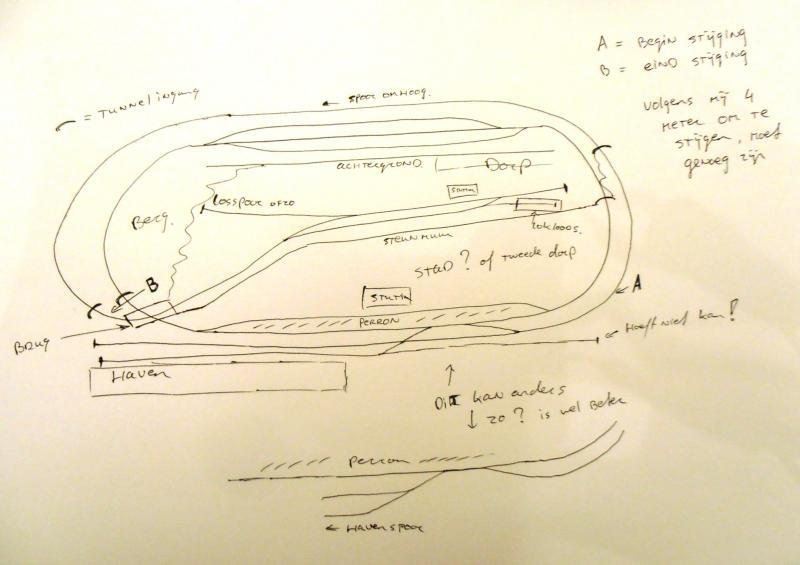 A = Begin stijging
B = eind stijging
volgens mij 4
meter om te
stijgen, moet
genoeg zijn
= Tunnelingang
← spoor omhoog.
achtergrond
Dorp
Berg.
losspoor ofzo
steunmuur
stad ? of tweede dorp
B
A
Perron
Brug
Hoeft niet kan!
Haven
Dit kan anders
↓ zo ? is wel Beter
Perron
← Havenspoor